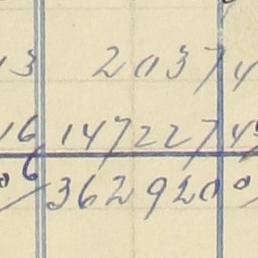 13 2037 4
16 147227 4
06 362920 0